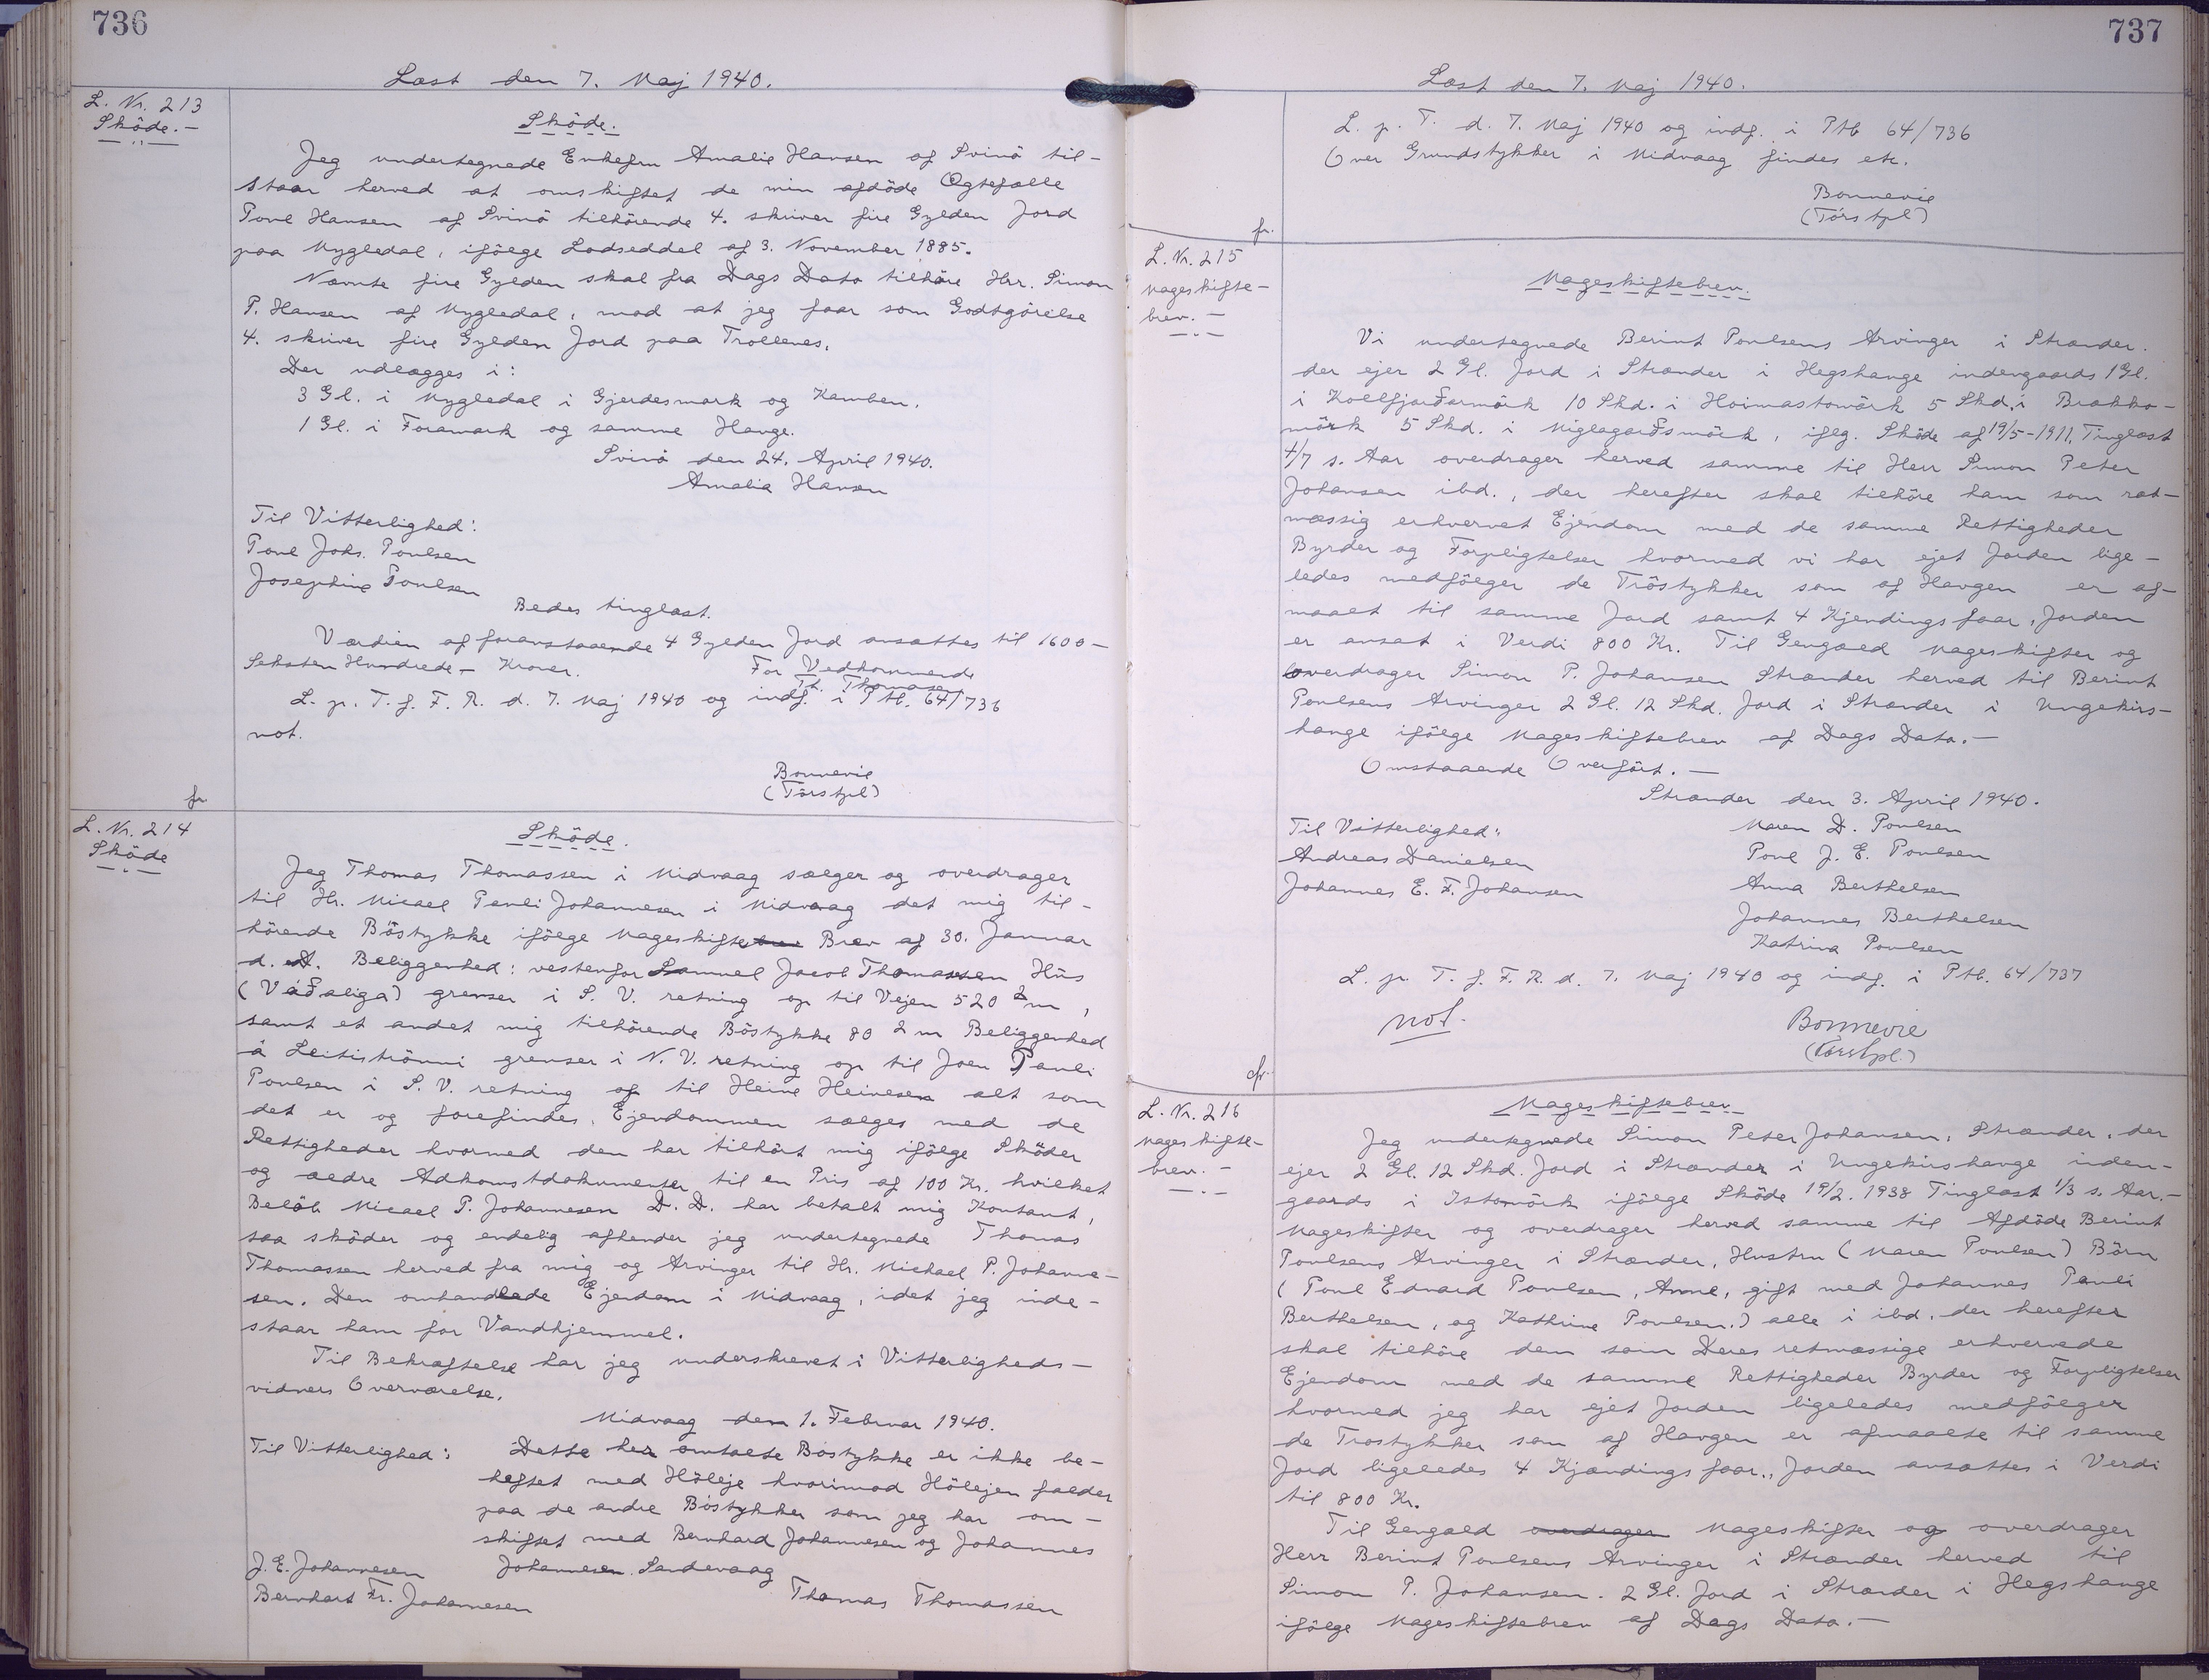 736
Læst den 7. Maj 1940.
L. Nr. 213
Sköde.-
Sköde.
Jeg undertegnede Enkefru Amalie Hansen af Svinö til-
staar herved at omskiftet de min afdöde Ægtefælle
Poul Hansen af Svinö tilhörende 4. skriver fire Gylden Jord
paa Mygledal, ifölge Lodseddel af 3. November 1885.
Nævnte fire Gylden skal fra Dags Dato tilhöre Hrr. Simon
P. Hansen af Mygledal, mod at jeg faar som Godtgörelse
4. skriver fire Gylden Jord paa Trollenes.
Der udlægges i:
3 Gl. i Mygledal i Gjerdesmark og Kamben.
1 Gl. i Foramark og samme Hauge.
Svinö den 24. April 1940.
Amalia Hansen
Til Vitterlighed:
Poul Johs. Poulsen
Josephine Poulsen
Bedes tinglæst.
Værdien af foranstaaende 4 Gylden Jord ansættes til 1600-
Seksten Hundrede - Kroner.
For Vedkommende
Th. Thomasen
L. p. T. f. F. R. d. 7. Maj 1940 og indf. i Ptb. 64/736
not.
Bonnevie
(Törstpl)
fr.
L. Nr. 214
Sköde
Sköde.
Jeg Thomas Thomassen i Midvaag sælger og overdrager
til Hr. Micael Pauli Johannesen i Midvaag det mig til-
hörende Böstykke ifölge Mageskiftebrev Brev af 30. Januar
d. A. Beliggenhed: vestenfor Sammel Jacob Thomassen Hüs
(Váðaliga) grenser i S. V. retning op til Vejen 520 2m,
samt et andet mig tilhörende Böstykke 80 2m Beliggenhed
á Leitiströnni grenser i N. V. retning op til Joen Pauli
Poulsen i S. V. retning op til Heine Heinesen alt som
det er og forefindes. Ejendommen sælges med de
Rettigheder hvormed den har tilhört mig ifölge Sköder
og aedre Adkomstdokumenter til en Pris af 100 Kr. hvilket
Belöb Micael P. Johannesen D. D. har betalt mig Kontant,
saa sköder og endelig afhender jeg undertegnede Thomas
Thomassen herved fra mig og Arvinger til Hr. Michael P. Johanne-
sen. Den omhandlede Ejendom i Midvaag, idet jeg inde-
staar ham for Vandhjemmel.
Til Bekræftelse har jeg underskrevet i Vitterligheds-
vidners Overværelse.
Midvaag den 1. Februar 1940.
Til Vitterlighed:
Dette her omtalte Böstykke er ikke be-
heftet med Höleje hvorimod Hölejen falder
paa de andre Böstykker som jeg har om-
skiftet med Bernhard Johannesen og Johannes
Johannesen. Sandevaag
J. E. Johannesen
Bernhart Fr. Johannesen
Thomas Thomassen
737
Læst den 7. Maj 1940.
L. p. T. d. 7. Maj 1940 og indf. i Ptb 64/736
Over Grundstykker i Midvaag findes etc.
Bonnevie
(Törstpl)
fr.
L. Nr. 215
Mageskifte-
brev.-
Mageskiftebrev.
Vi undertegnede Berint Poulsens Arvinger i Strænder.
der ejer 2 Gl. Jord i Strænder i Hegshauge indengaards 1 Gl.
i Kollfjarðarmörk 10 Skd. i Hoimastomörk 5 Skd. i Brakko-
mörk 5 Skd. i Niglagarðsmörk, iflg. Sköde af 19/5-1911, Tinglæst
4/7 s. Aar overdrager herved samme til Herr Simon Peter
Johansen ibd., der herefter skal tilhöre ham som ret-
mæssig erhvervet Ejendom med de samme Rettigheder
Byrder og Forpligtelser hvormed vi har ejet Jorden lige-
ledes medfölger de Tröstykker som af Haugen er af-
maalt til samme Jord samt 4 Kjendingsfaar, Jorden
er ansat i Verdi 800 Kr. Til Gengæld mageskifter og
overdrager Simon P. Johansen Strænder herved til Berint
Poulsens Arvinger 2 Gl. 12 Skd. Jord i Strænder i Ungekirs-
hauge ifölge Mageskiftebrev af Dags Dato.-
Omstaaende Overfört.-
Strænder den 3. April 1940.
Til Vitterlighed:
Andreas Danielsen
Johannes E. F. Johansen
Maren D. Poulsen
Poul J. E. Poulsen
Anna Berthelsen
Johannes Berthelsen
Katrina Poulsen
L. p. T. f. F. R. d. 7. Maj 1940 og indf. i Ptb. 64/737
not.
Bonnevie
(Törstpl.)
cfr.
L. Nr. 216
Mageskifte-
brev.-
Mageskiftebrev.
Jeg undertegnede Simon Peter Johansen, Strænder, der
ejer 2 Gl. 12 Skd. Jord i Strænder i Ungekirshauge inden-
gaards i Istomörk ifölge Sköde 19/2. 1938 Tinglæst 1/3 s. Aar.-
Mageskifter og overdrager herved samme til Afdöde Berint
Poulsens Arvinger i Strænder, Hustru (Maren Poulsen) Börn
(Poul Edvard Poulsen, Anne, gift med Johannes Pauli
Berthelsen, og Kathrine Poulsen.) alle i ibd. der herefter
skal tilhöre dem som Deres retmæssige erhvervede
Ejendom med de samme Rettigheder Byrder og Forpligtelser
hvormed jeg har ejet Jorden ligeledes medfölger
de Trostykker som af Haugen er afmaalte til samme
Jord ligeledes 4 Kjændingsfaar., Jorden ansættes i Verdi
til 800 Kr.
Til Gengæld overdrager Mageskifter og overdrager
Herr Berint Poulsens Arvinger i Strænder herved til
Simon P. Johansen. 2 Gl. Jord i Strænder i Hegshauge
ifölge Mageskiftebrev af Dags Dato.-